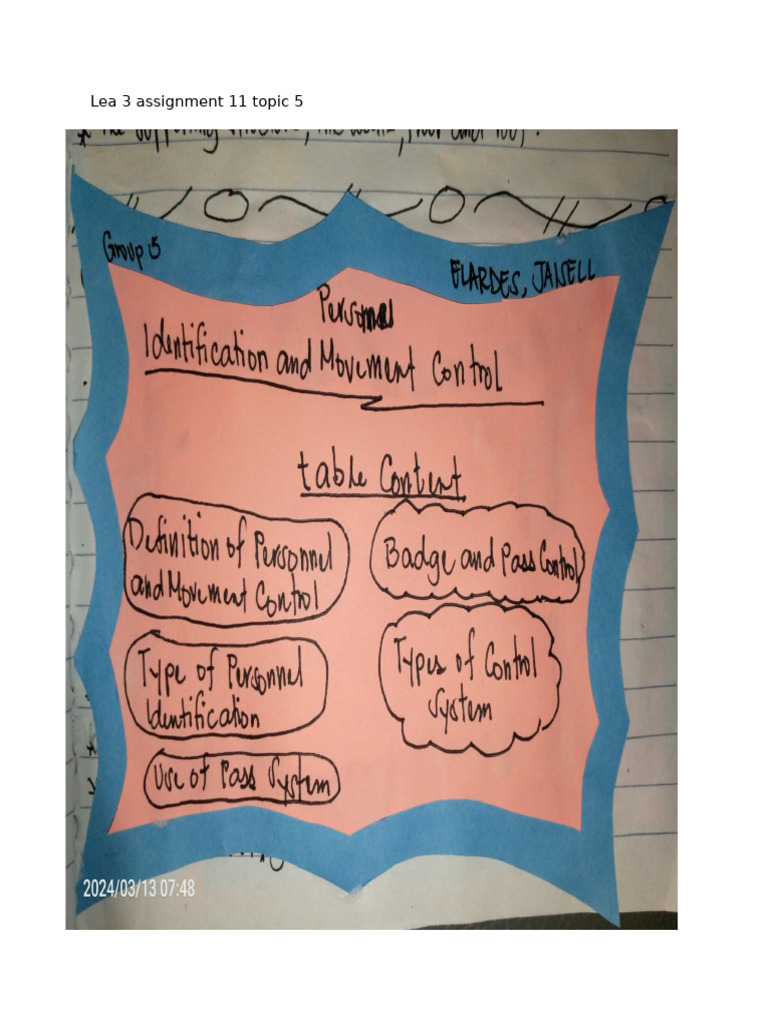 Lea 3 assignment 11 topic 5
Group 5
ELARDES, JANELL
Personnel
Identification and Movement Control
table Content
Definition of Personnel
and Movement Control
Badge and Pass Control
Type of Personnel
Identification
Types of Control
System
Use of Pass System
2024/03/13 07:48